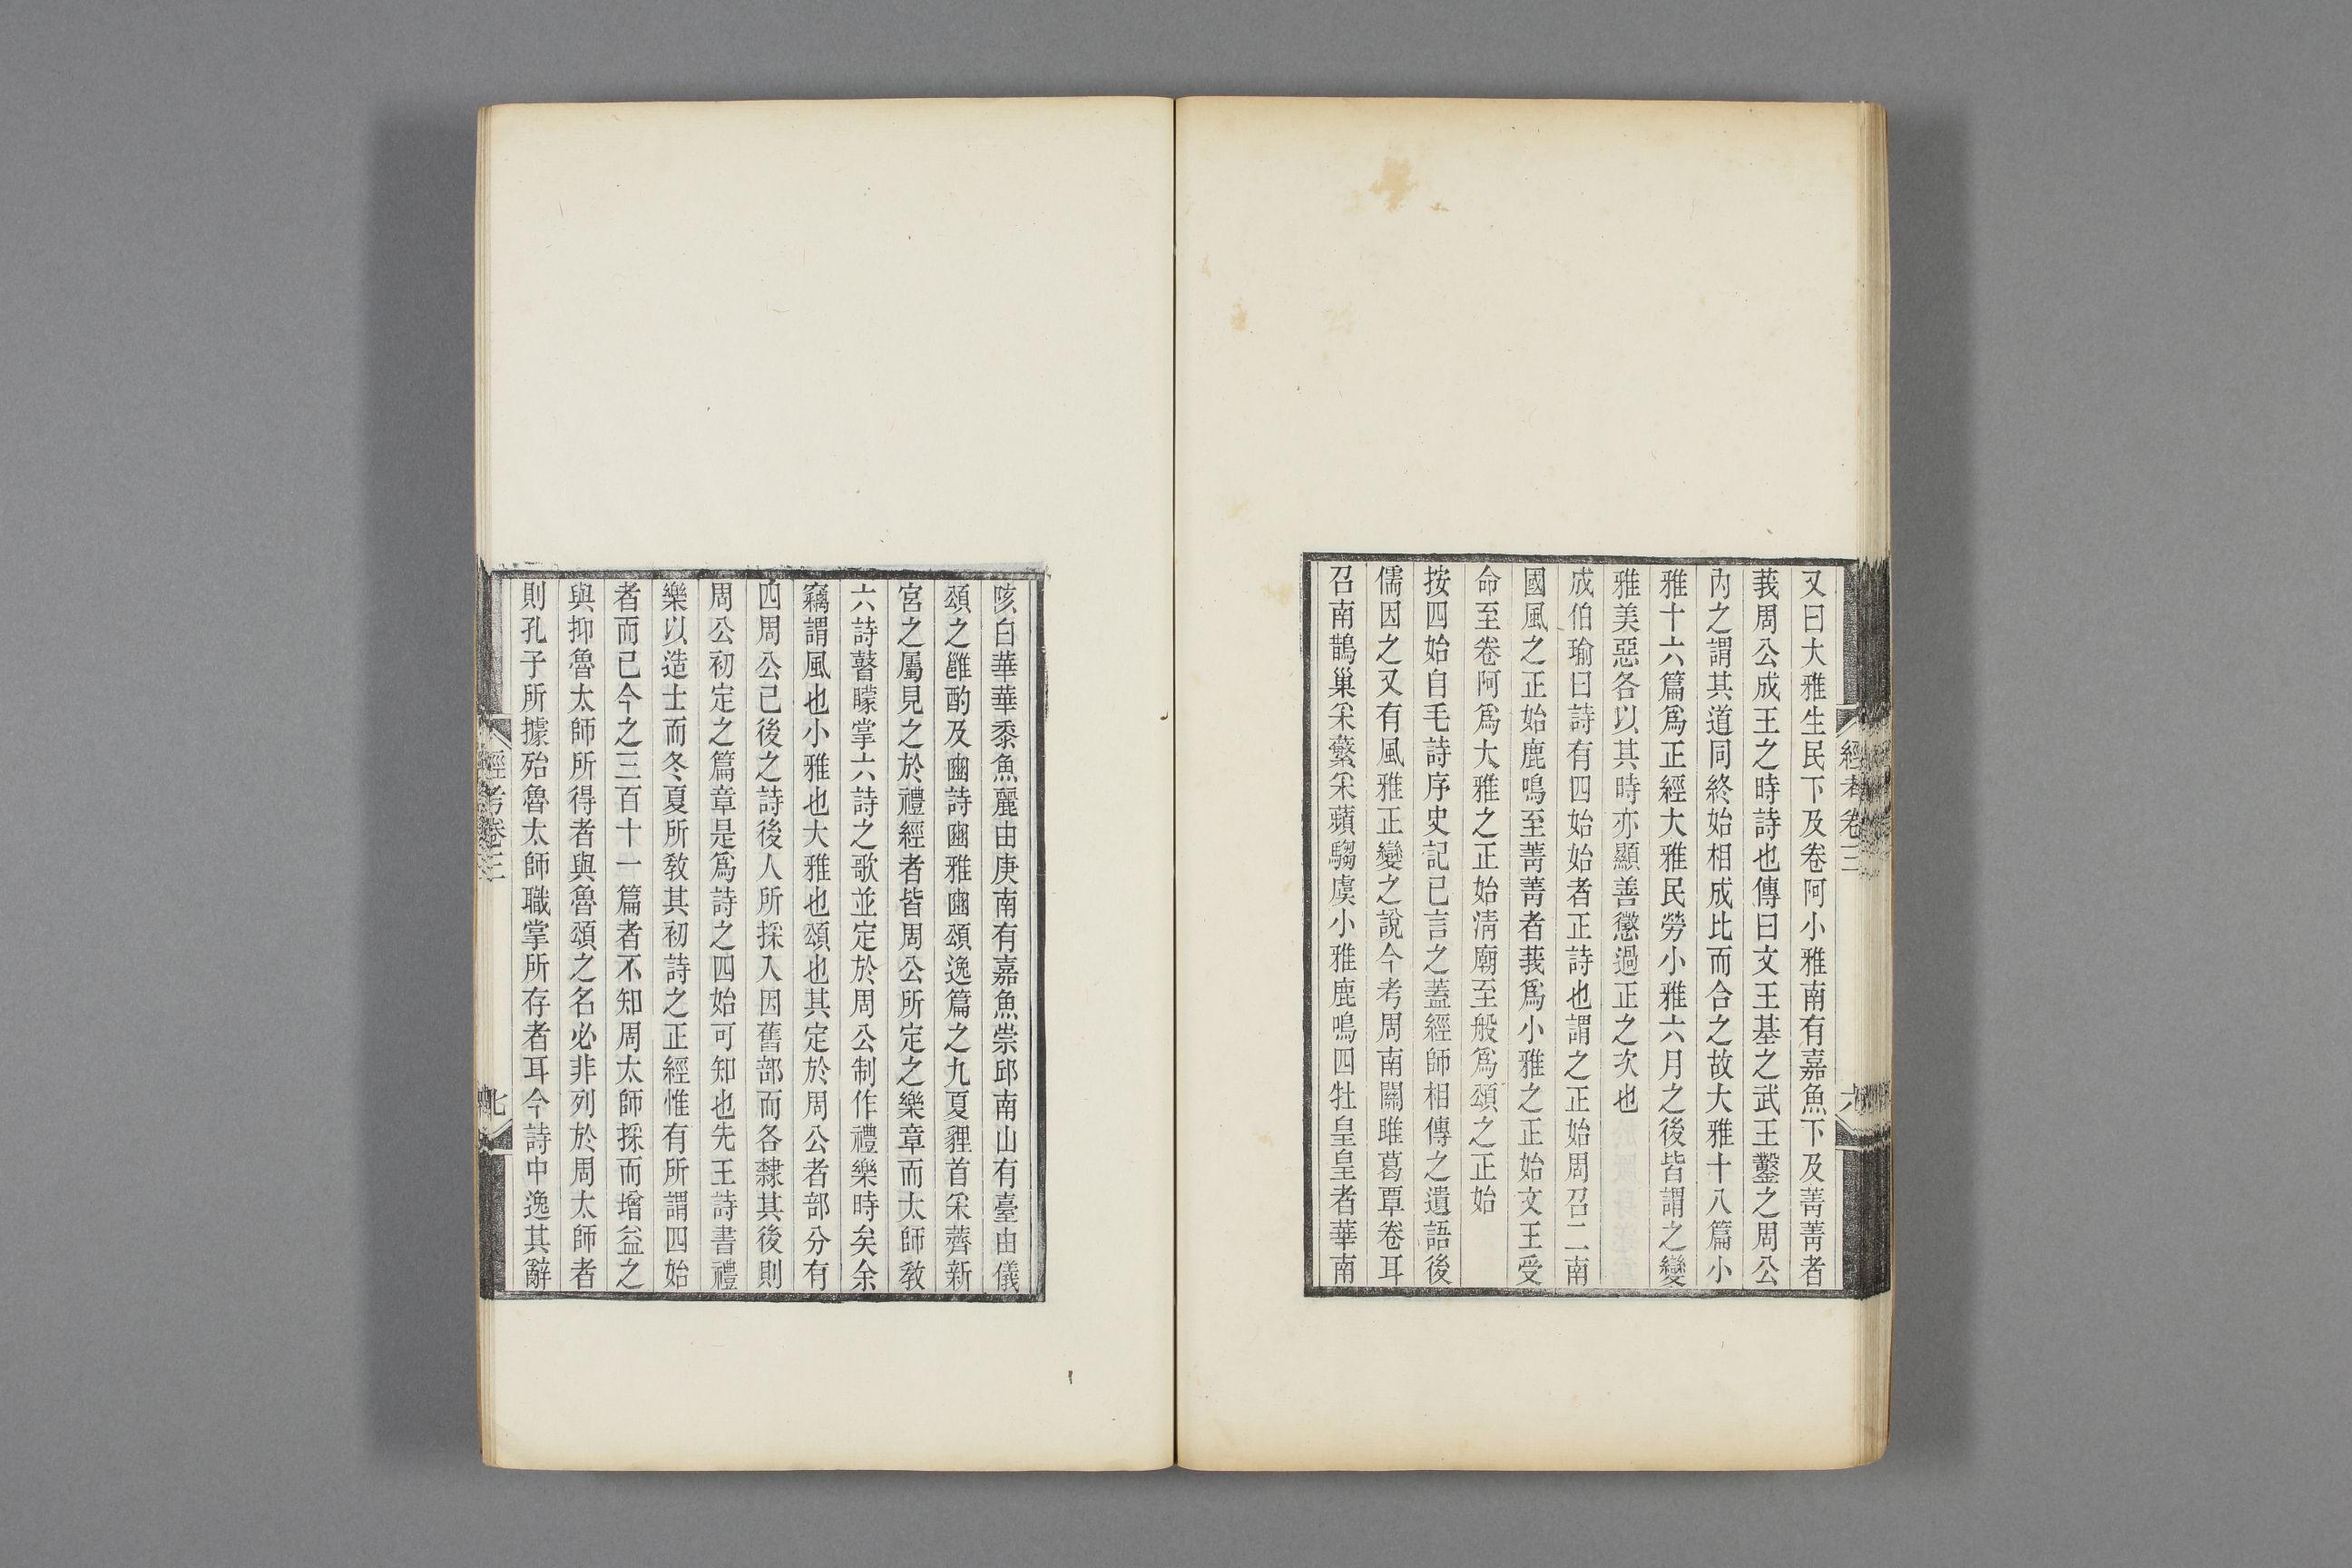 又曰大雅生民下及卷阿小雅南有嘉魚下及菁菁者
莪周公成王之時詩也傳曰文王基之武王鑿之周公
內之謂其道同終始相成比而合之故大雅十八篇小
雅十六篇爲正經大雅民勞小雅六月之後皆謂之變
雅美惡各以其時亦顯善懲過正之次也
成伯瑜曰詩有四始始者正詩也謂之正始周召二南
國風之正始鹿鳴至菁菁者莪爲小雅之正始文王受
命至卷阿爲大雅之正始淸廟至般爲頌之正始
按四始自毛詩序史記已言之蓋經師相傳之遺語後
儒因之又有風雅正變之說今考周南關雎葛覃卷耳
召南鵲巢采蘩采蘋騶虞小雅鹿鳴四牡皇皇者華南
經考卷三
六
陔白華華黍魚麗由庚南有嘉魚崇邱南山有臺由儀
頌之雝酌及豳詩豳雅豳頌逸篇之九夏貍首采薺新
宮之屬見之於禮經者皆周公所定之樂章而太師敎
六詩瞽矇掌六詩之歌並定於周公制作禮樂時矣余
竊謂風也小雅也大雅也頌也其定於周公者部分有
四周公已後之詩後人所採入因舊部而各隸其後則
周公初定之篇章是爲詩之四始可知也先王詩書禮
樂以造士而冬夏所敎其初詩之正經惟有所謂四始
者而已今之三百十一篇者不知周太師採而增益之
與抑魯太師所得者與魯頌之名必非列於周太師者
則孔子所據殆魯太師職掌所存者耳今詩中逸其辭
經考卷三
七